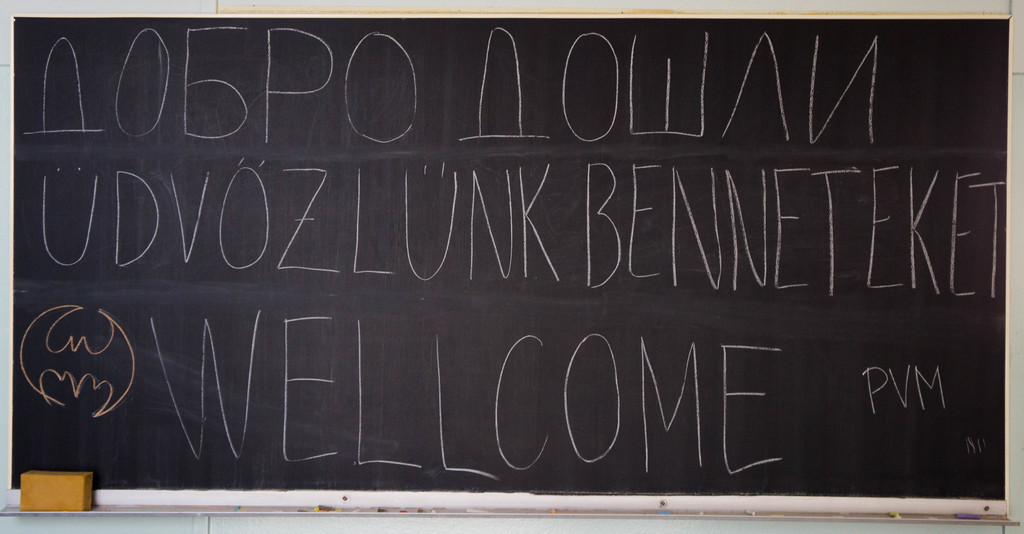 ДОБРО ДОШЛИ
ÜDVŐZLÜNK BENNETEKET
WELLCOME
PVM